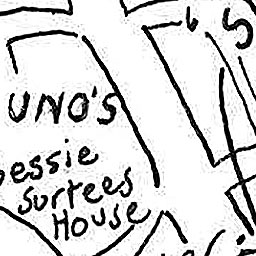 UNO'S
essie
Surtees
House